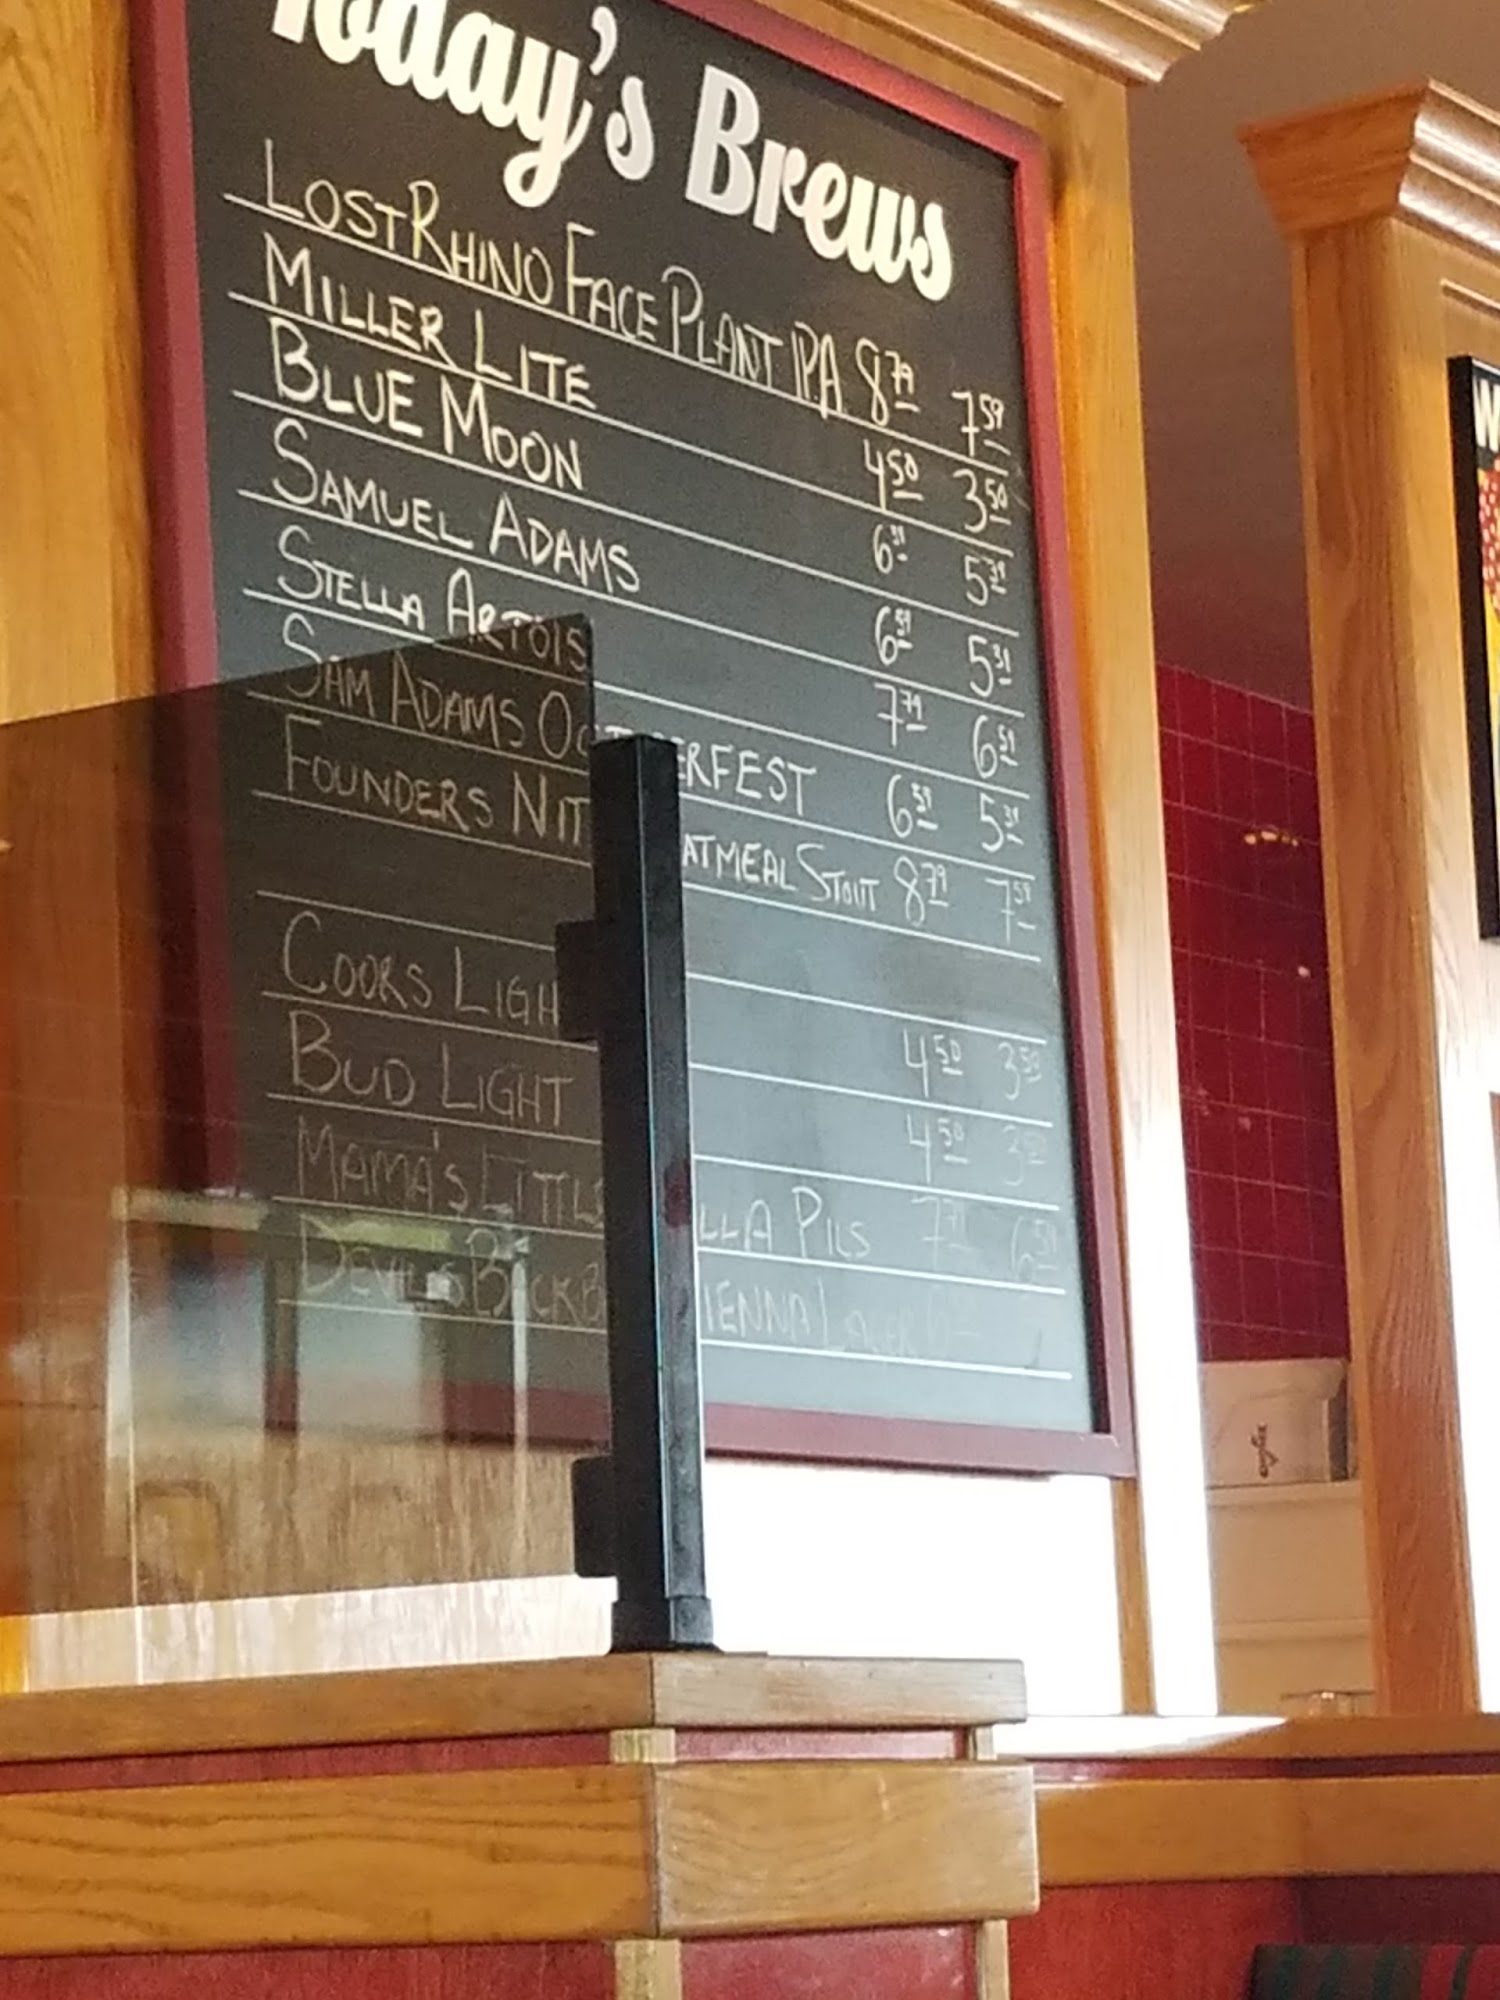 Today's Brews
LOST RHINO FACE PLANT IPA 8 79 7 59
MILLER LITE 4 50 3 50
BLUE MOON 6 59 5 39
SAMUEL ADAMS 6 59 5 39
STELLA ARTOIS 7 79 6 59
SAM ADAMS OCT ERFEST 6 59 5 39
FOUNDERS NIT ATMEAL STOUT 8 79 7 59
COORS LIGH 4 50 3 50
BUD LIGHT 4 50 3 50
MAMA'S LITTLE LLA PILS 6 59
DEVIL'S BACKB IENNA LAGER
W